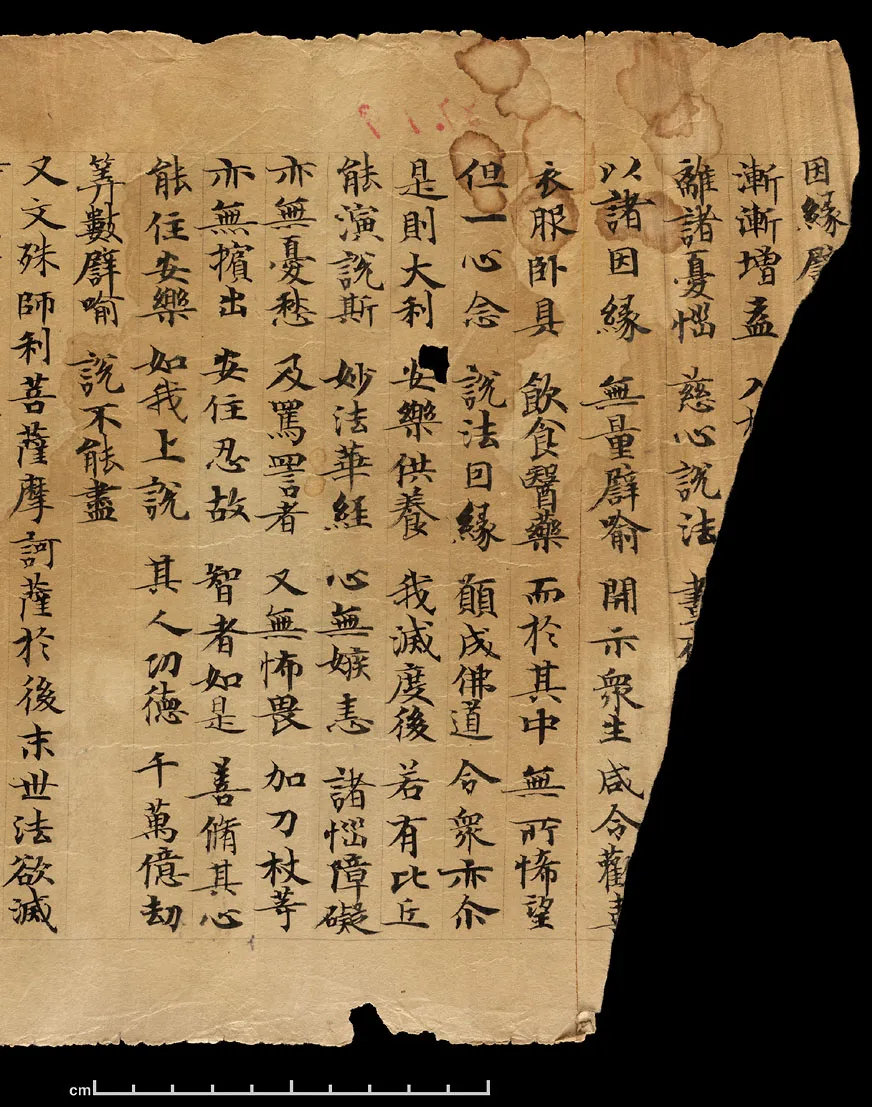 因緣
漸漸增益 入
離諸憂惱 慈心說法 晝
以諸因緣 無量譬喻 開示衆生 咸令歡喜
衣服卧具 飲食醫藥 而於其中 無所悕望
但一心念 說法因緣 願成佛道 令衆亦尒
是則大利 安樂供養 我滅度後 若有比丘
能演說斯 妙法華經 心無嫉恚 諸惱障礙
亦無憂愁 及罵詈者 又無怖畏 加刀杖等
亦無擯出 安住忍故 智者如是 善脩其心
能住安樂 如我上說 其人功德 千萬億劫
筭數譬喻 說不能盡
又文殊師利菩薩摩訶薩於後末世法欲滅